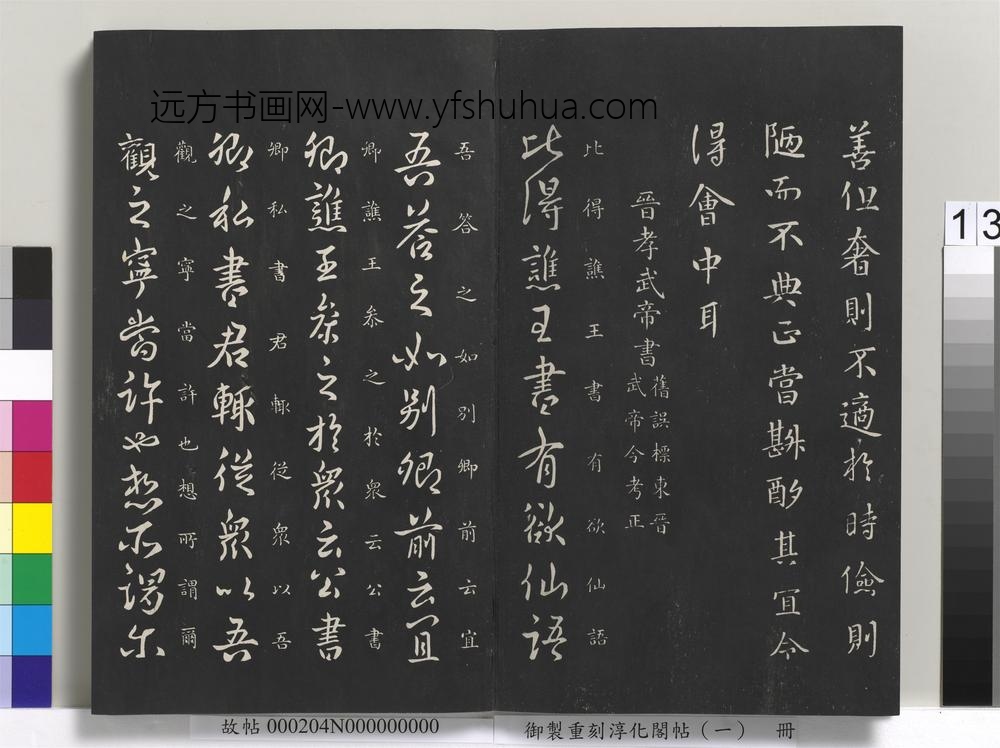 远方书画网-www.yfshuhua.com
善但奢則不適於時儉則
陋而不典正當斟酌其宜令
得會中耳
晉孝武帝書
舊誤標東晉
武帝今考正
比得譙王書有欲仙語
比得譙王書有欲仙語
吾答之如別卿前云宜
吾答之如別卿前云宜
卿譙王叅之於衆云公書
卿譙王叅之於衆云公書
卿私書君輙從衆以吾
卿私書君輙從衆以吾
觀之寧當許也想所謂爾
觀之寧當許也想所謂尔
13
故帖 000204N000000000
御製重刻淳化閣帖(一) 冊